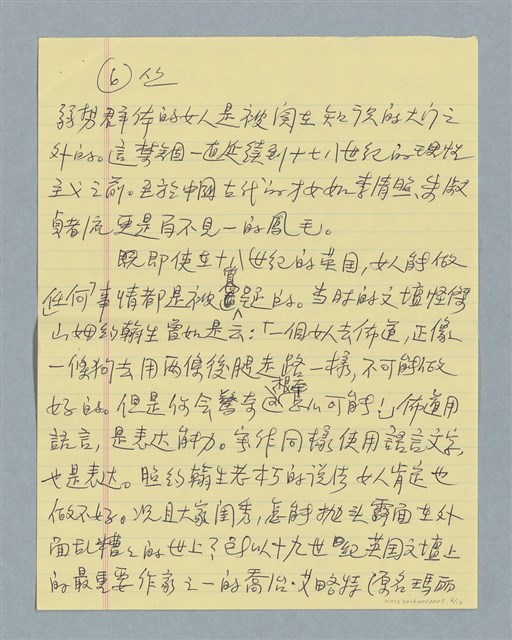 ⑥
弱勢群体的女人是被関在知识的大门之
外的。這禁錮一直延續到十七八世紀的理性
主义之前。至於中國古代的才女如李清照、朱淑
貞者流更是百不見一的鳳毛。
既即使在十八世紀的英国,女人能做
任何事情都是被質疑的。当时的文壇怪傑
山姆約翰生曾如是云:「一個女人去佈道,正像
一條狗去用两條後腿走路一樣,不可能做
好的。但是你会驚奇這根本怎么可能!」佈道用
語言,是表达能力。寫作同樣使用語言文字,
也是表达。照約翰生老本巧的说法女人肯定也
做不好。况且大家闺秀,怎能抛头露面在外
面乱糟糟的世上?所以十九世紀英国文壇上
的最重要作家之一的喬治·艾略特 原名瑪丽